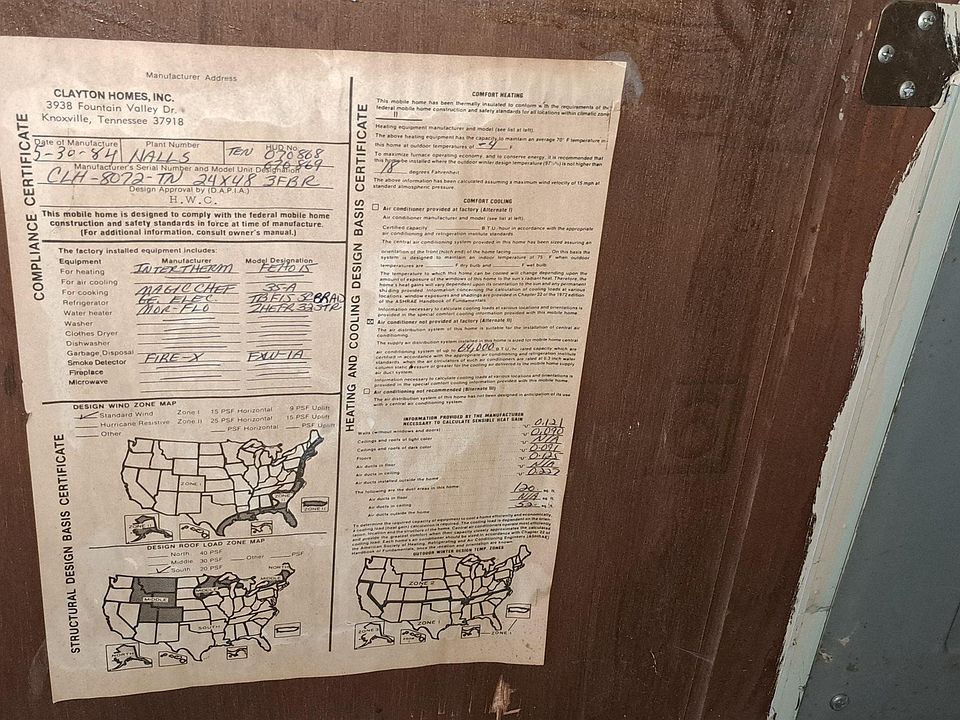 Manufacturer Address
CLAYTON HOMES, INC.
3938 Fountain Valley Dr.
Knoxville, Tennessee 37918
COMPLIANCE CERTIFICATE
Date of Manufacture Plant Number HUD No.
5-30-84 NALLS TEN 070868
070869
Manufacturer's Serial Number and Model Unit Designation
CLH-8072-TN 24X48 3FBR
Design Approval by (D.A.P.I.A.)
H.W.C.
This mobile home is designed to comply with the federal mobile home
construction and safety standards in force at time of manufacture.
(For additional information, consult owner's manual.)
The factory installed equipment includes:
Equipment Manufacturer Model Designation
For heating INTERTHERM
For air cooling
For cooking MAGIC CHEF 35-A
Refrigerator ELEC
Water heater MOR-FLO
Washer
Clothes Dryer
Dishwasher
Garbage Disposal
Smoke Detector FIRE-X
Fireplace
Microwave
STRUCTURAL DESIGN BASIS CERTIFICATE
DESIGN WIND ZONE MAP
Standard Wind Zone I 15 PSF Horizontal 9 PSF Uplift
Hurricane Resistive Zone II 25 PSF Horizontal 15 PSF Uplift
Other PSF Horizontal PSF Uplift
ZONE I
ZONE II
DESIGN ROOF LOAD ZONE MAP
North 40 PSF
Middle 30 PSF Other PSF
South 20 PSF
NORTH
MIDDLE
SOUTH
NORTH
HEATING AND COOLING DESIGN BASIS CERTIFICATE
COMFORT HEATING
This mobile home has been thermally insulated to conform with the requirements of the
federal mobile home construction and safety standards for all locations within climatic zone
II
Heating equipment manufacturer and model (see list at left).
The above heating equipment has the capacity to maintain an average 70° F temperature in
this home at outdoor temperatures of -4 F.
To maximize furnace operating economy, and to conserve energy, it is recommended that
this home be installed where the outdoor winter design temperature (97½%) is not higher than
18 degrees Fahrenheit
The above information has been calculated assuming a maximum wind velocity of 15 mph at
standard atmospheric pressure.
COMFORT COOLING
Air conditioner provided at factory (Alternate I)
Air conditioner manufacturer and model (see list at left).
Certified capacity B.T.U./hour in accordance with the appropriate
air conditioning and refrigeration institute standards
The central air conditioning system provided in this home has been sized assuming an
orientation of the front (hitch end) of the home facing On this basis the
system is designed to maintain an indoor temperature of 75° F when outdoor
temperatures are F dry bulb and F wet bulb.
The temperature to which this home can be cooled will change depending upon the
amount of exposure of the windows of this home to the sun's radiant heat. Therefore, the
home's heat gains will vary dependent upon its orientation to the sun and any permanent
shading provided. Information concerning the calculation of cooling loads at various
locations, window exposures and shadings are provided in Chapter 22 of the 1972 edition
of the ASHRAE Handbook of Fundamentals.
Information necessary to calculate cooling loads at various locations and orientations is
provided in the special comfort cooling information provided with this mobile home.
Air conditioner not provided at factory (Alternate II)
The air distribution system of this home is suitable for the installation of central air
conditioning.
The supply air distribution system installed in this home is sized for mobile home central
air conditioning system of up to 64,000 B.T.U./hr. rated capacity which are
certified in accordance with the appropriate air conditioning and refrigeration institute
standards, when the air circulators of such air conditioners are rated at 0.3 inch water
column static pressure or greater for the cooling air delivered to the mobile home supply
air duct system.
Information necessary to calculate cooling loads at various locations and orientations is
provided in the special comfort cooling information provided with this mobile home.
Air conditioning not recommended (Alternate III)
The air distribution system of this home has not been designed in anticipation of its use
with a central air conditioning system.
INFORMATION PROVIDED BY THE MANUFACTURER
NECESSARY TO CALCULATE SENSIBLE HEAT GAIN
Walls (without windows and doors) "U" 0.121
Ceilings and roofs of light color "U" 0.090
Ceilings and roofs of dark color "U" N/A
Floors "U"
Air ducts in floor "U" 0.125
Air ducts in ceiling "U" N/A
Air ducts installed outside the home "U"
The following are the duct areas in this home:
Air ducts in floor 120 sq. ft.
Air ducts in ceiling N/A sq. ft.
Air ducts outside the home sq. ft.
OUTDOOR WINTER DESIGN TEMP. ZONES
ZONE II
ZONE I
ZONE I